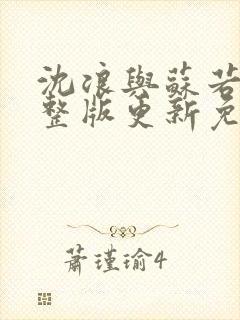 沈浪與蘇若
整版更新免
蕭瑾瑜4